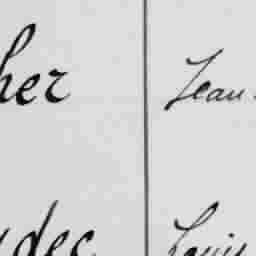 her Jean
dec Louis